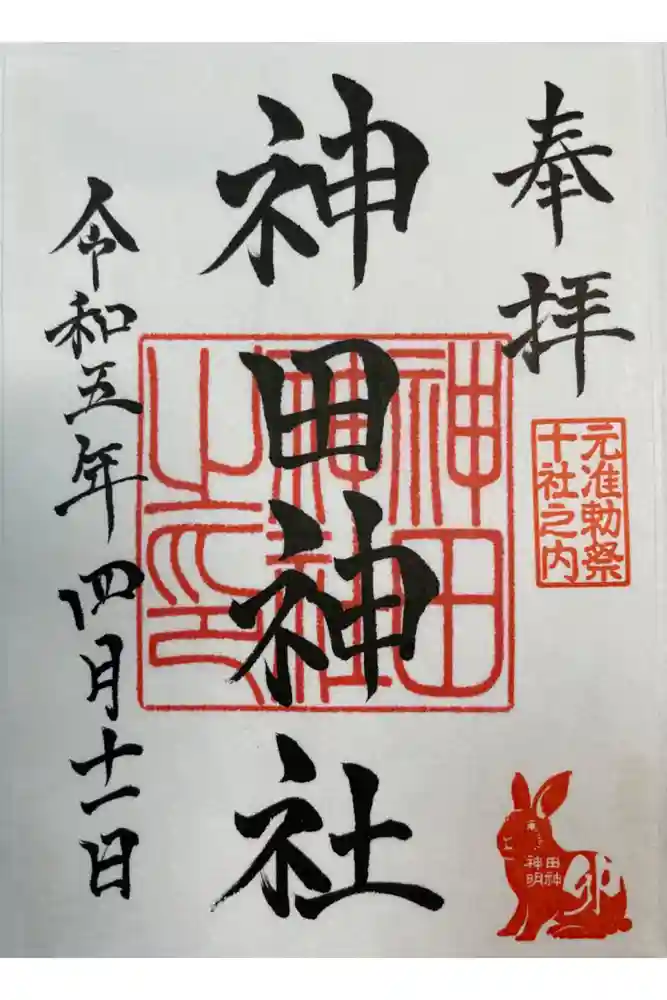 奉拝
元准勅祭
十社之内
神田神社
神田
神社
之印
令和五年四月十一日
田神
神明
卯